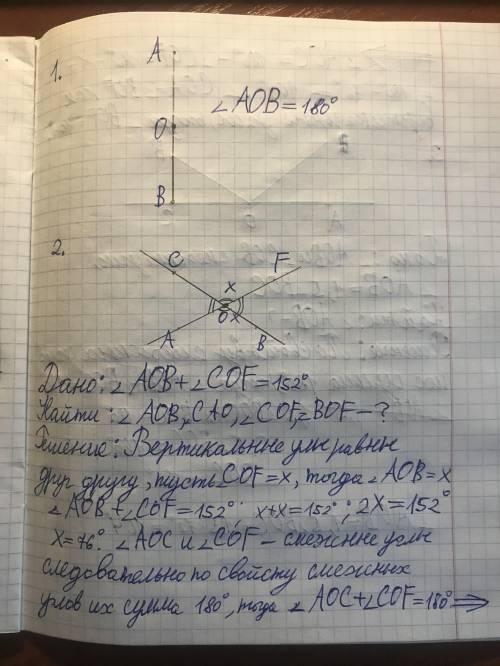 1.
A
∠AOB = 180°
O
B
2.
C
F
x
O
x
A
B
Дано: ∠AOB + ∠COF = 152°
Найти: ∠AOB, CAO, ∠COF, ∠BOF - ?
Решение: Вертикальные углы равны
друг другу, пусть COF = x, тогда ∠AOB = x
∠AOB + ∠COF = 152° x+x = 152°; 2x = 152°
x = 76° ∠AOC и ∠COF - смежные углы
следовательно по свойсту смежных
углов их сумма 180°, тогда ∠AOC + ∠COF = 180° ⇒